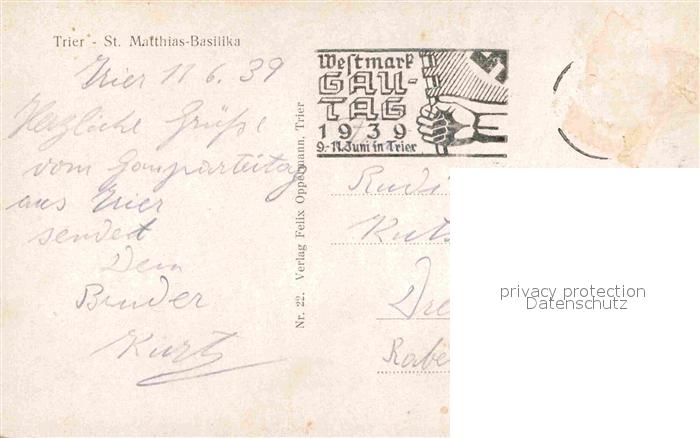 Trier - St. Matthias-Basilika
Trier 11 6. 39
Herzliche Grüße
vom Gauparteitag
aus Trier
sendet
Dein
Bruder
Kurt
Nr. 22. Verlag Felix Oppermann, Trier
Westmark
GAU-
TAG
1939
9.-11. Juni in Trier
privacy protection
Datenschutz